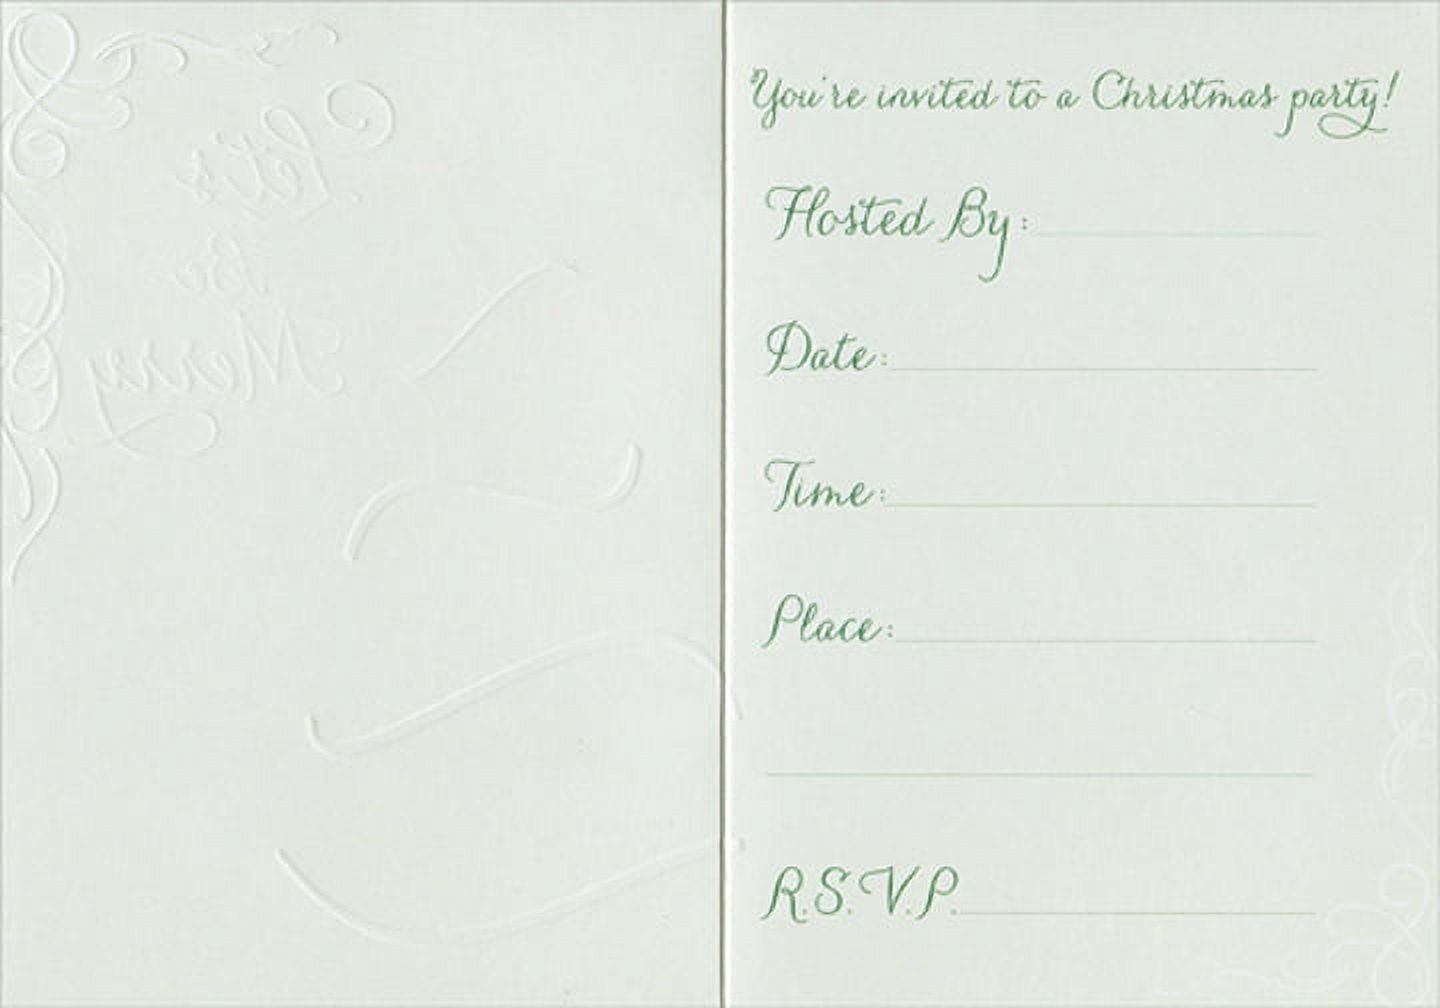 Let's
Be
Merry
You're invited to a Christmas party!
Hosted By:
Date:
Time:
Place:
R.S.V.P.